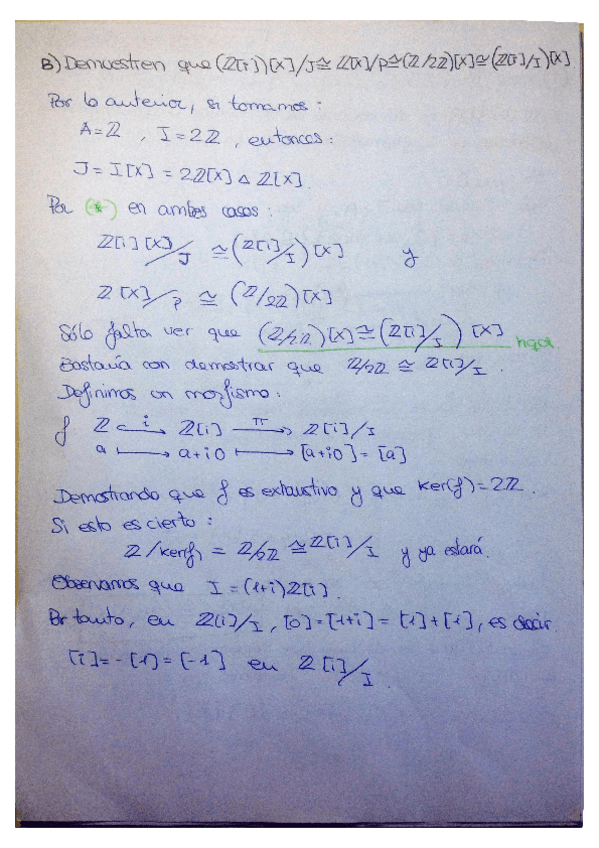 B) Demuestren que (ℤ[i])[x]/J ≅ ℤ[x]/P ≅ (ℤ/2ℤ)[x] ≅ (ℤ[i]/I)[x]
Por lo anterior, si tomamos:
A = ℤ , I = 2ℤ , entonces:
J = I[x] = 2ℤ[x] △ ℤ[x].
Por (*) en ambos casos:
ℤ[i][x]/J ≅ (ℤ[i]/I)[x] y
ℤ[x]/P ≅ (ℤ/2ℤ)[x]
Sólo falta ver que (ℤ/2ℤ)[x] ≅ (ℤ[i]/I)[x]
Bastaría con demostrar que ℤ/2ℤ ≅ ℤ[i]/I.
Definimos un morfismo:
f ℤ ↪ i ℤ[i] π → ℤ[i]/I
a ⟼ a+i0 ⟼ [a+i0] = [a]
Demostrando que f es exhaustivo y que Ker(f) = 2ℤ.
Si esto es cierto:
ℤ/ker(f) = ℤ/2ℤ ≅ ℤ[i]/I y ya estará.
Observamos que I = (1+i)ℤ[i].
Por tanto, en ℤ[i]/I, [0] = [1+i] = [1]+[i], es decir
[i] = -[1] = [-1] en ℤ[i]/I